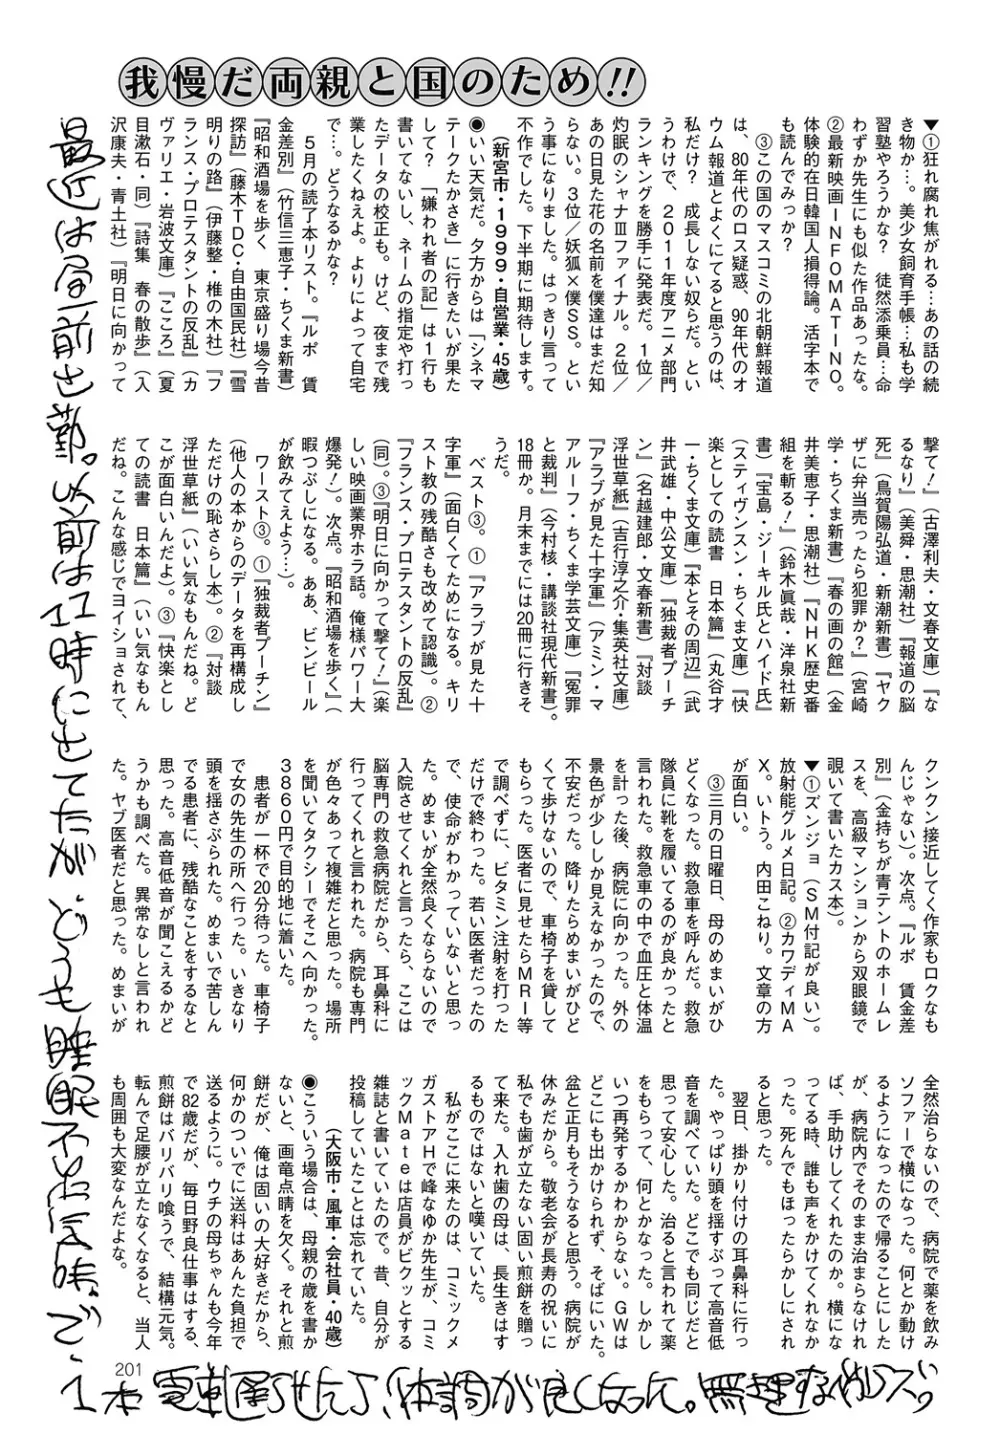 我慢だ両親と国のため!!
▼①狂れ腐れ焦がれる…あの話の続
き物か…。美少女飼育手帳…私も学
習塾やろうかな？　徒然添乗員…命
わずか先生にも似た作品あったな。
②最新映画ーＩＮＦＯＭＡＴＩＮＯ。
体験的在日韓国人損得論。活字本で
も読んでみっか？
③この国のマスコミの北朝鮮報道
は、80年代のロス疑惑、90年代のオ
ウム報道とよくにてると思うのは、
私だけ？　成長しない奴らだ。とい
うわけで、２０１１年度アニメ部門
ランキングを勝手に発表だ。１位／
灼眼のシャナⅢファイナル。２位／
あの日見た花の名前を僕達はまだ知
らない。３位／妖狐×僕ＳＳ。とい
う事になりました。はっきり言って
不作でした。下半期に期待します。
（新宮市・１９９９・自営業・45歳）
◉いい天気だ。夕方からは「シネマ
テークたかさき」に行きたいが果た
して？　「嫌われ者の記」は１行も
書いてないし、ネームの指定や打っ
たデータの校正も。けど、夜まで残
業したくねえよ。よりによって自宅
で…。どうなるかな？
５月の読了本リスト。『ルポ　賃
金差別』（竹信三恵子・ちくま新書）
『昭和酒場を歩く　東京盛り場今昔
探訪』（藤木ＴＤＣ・自由国民社）『雪
明りの路』（伊藤整・椎の木社）『フ
ランス・プロテスタントの反乱』（カ
ヴァリエ・岩波文庫）『こころ』（夏
目漱石・同）『詩集　春の散歩』（入
沢康夫・青土社）『明日に向かって
撃て！』（古澤利夫・文春文庫）『な
るなり』（美舜・思潮社）『報道の脳
死』（烏賀陽弘道・新潮新書）『ヤク
ザに弁当売ったら犯罪か？』（宮崎
学・ちくま新書）『春の画の館』（金
井美恵子・思潮社）『ＮＨＫ歴史番
組を斬る！』（鈴木眞哉・洋泉社新
書）『宝島・ジーキル氏とハイド氏』
（スティヴンスン・ちくま文庫）『快
楽としての読書　日本篇』（丸谷才
一・ちくま文庫）『本とその周辺』（武
井武雄・中公文庫）『独裁者プーチ
ン』（名越建郎・文春新書）『対談
浮世草紙』（吉行淳之介・集英社文庫）
『アラブが見た十字軍』（アミン・マ
アルーフ・ちくま学芸文庫）『冤罪
と裁判』（今村核・講談社現代新書）。
18冊か。月末までには20冊に行きそ
うだ。
ベスト③。①『アラブが見た十
字軍』（面白くてためになる。キリ
スト教の残酷さも改めて認識）。②
『フランス・プロテスタントの反乱』
（同）。③『明日に向かって撃て！』（楽
しい映画業界ホラ話。俺様パワー大
爆発！）。次点。『昭和酒場を歩く』（
暇つぶしになる。ああ、ビンビール
が飲みてえよう…）。
ワースト③。①『独裁者プーチン』
（他人の本からのデータを再構成し
ただけの恥さらし本）。②『対談
浮世草紙』（いい気なもんだね。ど
こが面白いんだよ）。③『快楽とし
ての読書　日本篇』（いい気なもん
だね。こんな感じでヨイショされて、
クンクン接近してく作家もロクなも
んじゃない）。次点。『ルポ　賃金差
別』（金持ちが青テントのホームレ
スを、高級マンションから双眼鏡で
覗いて書いたカス本）。
▼①ズンジョ（ＳＭ付記が良い）。
放射能グルメ日記。②カワディＭＡ
Ｘ。いトう。内田こねり。文章の方
が面白い。
③三月の日曜日、母のめまいがひ
どくなった。救急車を呼んだ。救急
隊員に靴を履いてるのが良かったと
言われた。救急車の中で血圧と体温
を計った後、病院に向かった。外の
景色が少ししか見えなかったので、
不安だった。降りたらめまいがひど
くて歩けないので、車椅子を貸して
もらった。医者に見せたらＭＲＩ等
で調べずに、ビタミン注射を打った
だけで終わった。若い医者だったの
で、使命がわかっていないと思っ
た。めまいが全然良くならないので
入院させてくれと言ったら、ここは
脳専門の救急病院だから、耳鼻科に
行ってくれと言われた。病院も専門
が色々あって複雑だと思った。場所
を聞いてタクシーでそこへ向かった。
３８６０円で目的地に着いた。
患者が一杯で20分待った。車椅子
で女の先生の所へ行った。いきなり
頭を揺さぶられた。めまいで苦しん
でる患者に、残酷なことをするなと
思った。高音低音が聞こえるかど
うかも調べた。異常なしと言われ
た。ヤブ医者だと思った。めまいが
全然治らないので、病院で薬を飲み
ソファーで横になった。何とか動け
るようになったので帰ることにした
が、病院内でそのまま治まらなけれ
ば、手助けしてくれたのか。横にな
ってる時、誰も声をかけてくれなか
った。死んでもほったらかしにされ
ると思った。
翌日、掛かり付けの耳鼻科に行っ
た。やっぱり頭を揺すぶって高音低
音を調べていた。どこでも同じだと
思って安心した。治ると言われて薬
をもらって、何とかなった。しかし
いつ再発するかわからない。ＧＷは
どこにも出かけられず、そばにいた。
盆と正月もそうなると思う。病院が
休みだから。敬老会が長寿の祝いに
私でも歯が立たない固い煎餅を贈っ
て来た。入れ歯の母は、長生きはす
るものではないと嘆いていた。
私がここに来たのは、コミックメ
ガストアＨで峰なゆか先生が、コミ
ックＭａｔｅは店員がビクッとする
雑誌と書いていたので。昔、自分が
投稿していたことは忘れていた。
（大阪市・風車・会社員・40歳）
◉こういう場合は、母親の歳を書か
ないと、画竜点睛を欠く。それと煎
餅だが、俺は固いの大好きだから、
何かのついでに送料はあんた負担で
送るように。ウチの母ちゃんも今年
で82歳だが、毎日野良仕事はする、
煎餅はバリバリ喰うで、結構元気。
転んで足腰が立たなくなると、当人
も周囲も大変なんだよな。
最近は昼前出勤。以前は11時に出てたが、どうも睡眠不足気味で、
1本電車遅らせたら、体調が良くなった。無理すな仏ズ。
201